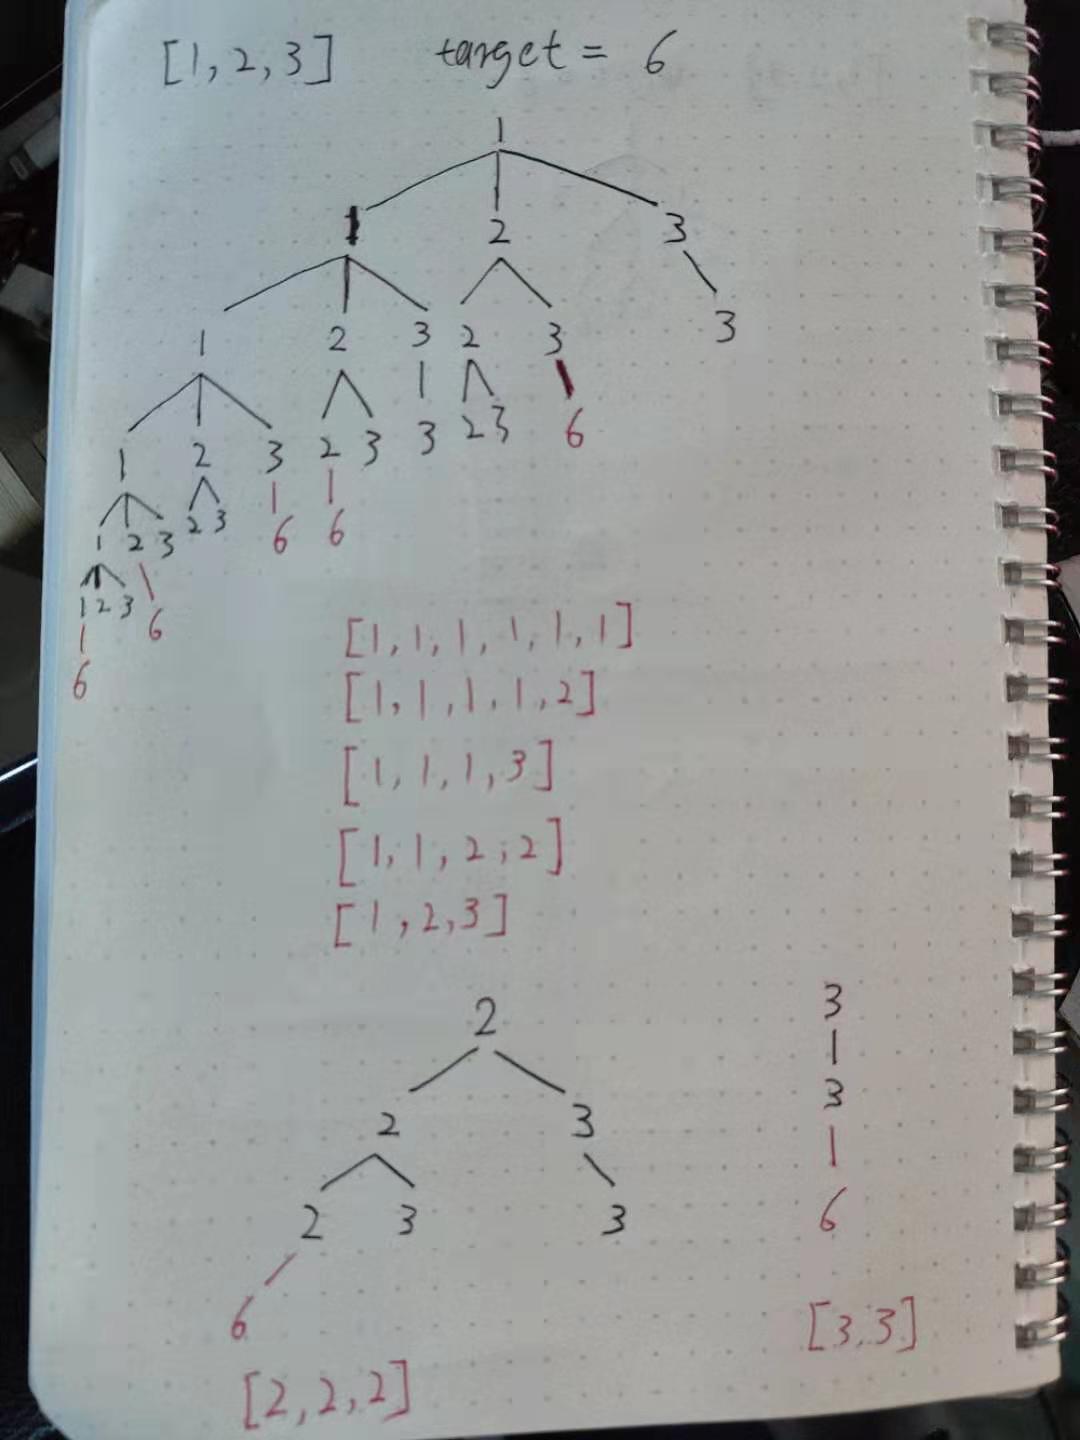 [1,2,3] target = 6
1
1 2 3
1 2 3 2 3 3
1 2 3 2 3 3 2 3 6
1 2 3 2 3 6 6
1 2 3 6
6
[1,1,1,1,1,1]
[1,1,1,1,2]
[1,1,1,3]
[1,1,2,2]
[1,2,3]
2 3
2 3 3
2 3 3 6
6
[3,3]
[2,2,2]